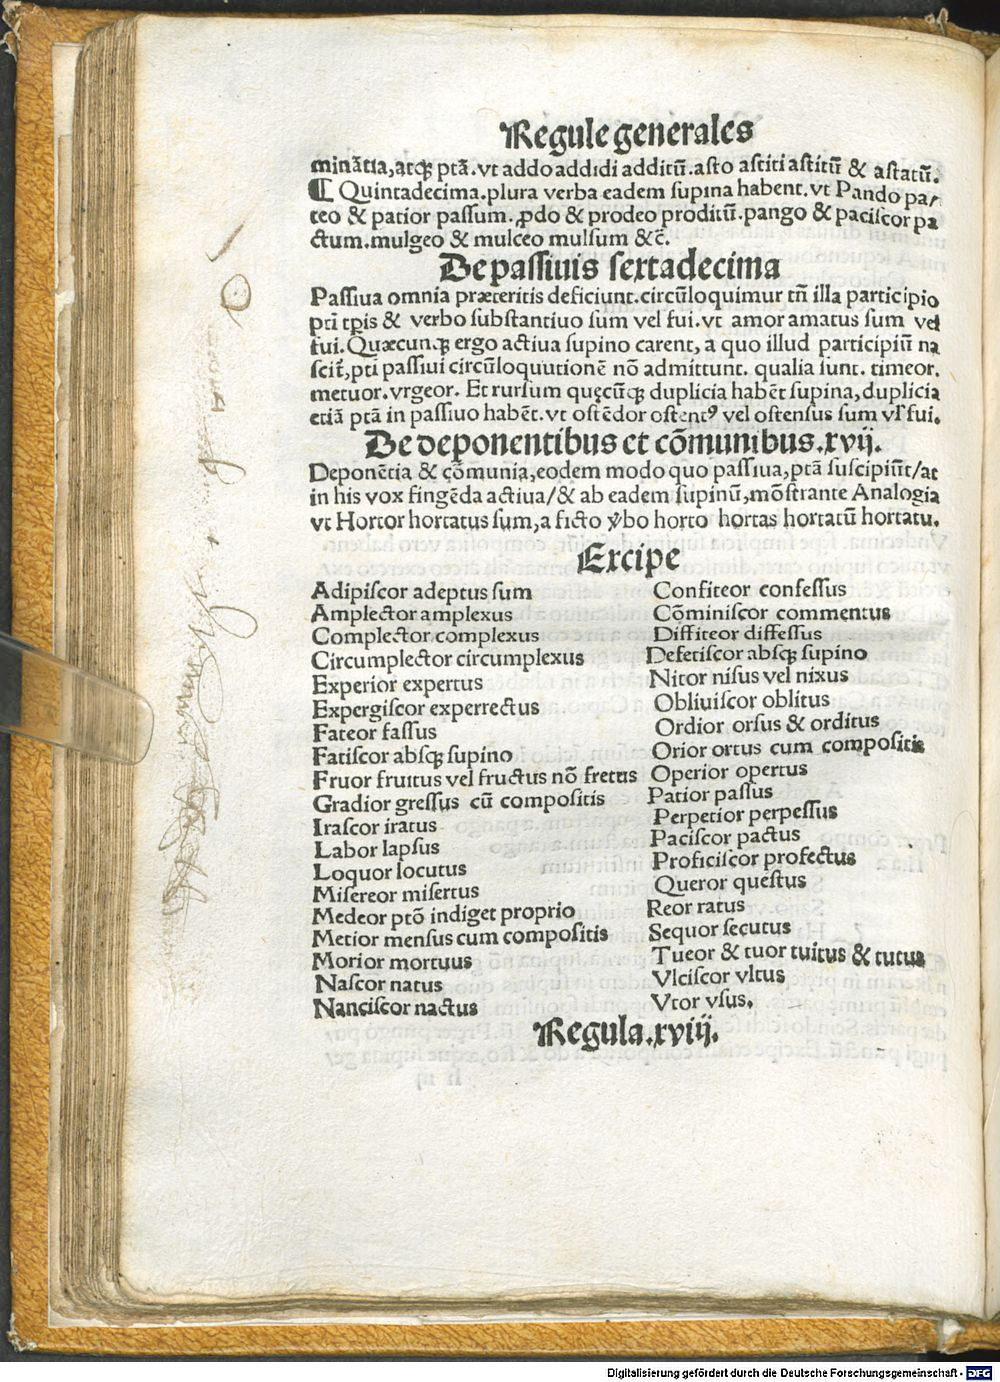 Regule generales
minãtia,atqꝫ ptã.vt addo addidi additũ.asto astiti astitũ & astatũ.
¶ Quintadecima.plura verba eadem supina habent.vt Pando par/
teo & patior passum.ꝓdo & prodeo proditũ.pango & paciscor pa
ctum.mulgeo & mulceo mulsum &c̃.
De passiuis sextadecima
Passiua omnia præteritis deficiunt.circũloquimur tñ illa participio
pti tpis & verbo substantiuo sum vel fui.vt amor amatus sum vel
fui.Quæcunqꝫ ergo actiua supino carent, a quo illud participiũ na
scit̃,pti passiui circũloquutionẽ nõ admittunt. qualia sunt. timeor.
metuor.vrgeor. Et rursum quęcũqꝫ duplicia habẽt supina,duplicia
etiã ptã in passiuo habẽt.vt ostẽdor ostentꝰ vel ostensus sum vł fui.
De deponentibus et cõmunibus.xvij.
Deponẽtia & cõmunia,eodem modo quo passiua,ptã suscipiũt/at
in his vox fingẽda actiua/& ab eadem supinũ,mõstrante Analogia
vt Hortor hortatus sum,a ficto v̆bo horto hortas hortatũ hortatu.
Excipe
Adipiscor adeptus sum
Amplector amplexus
Complector complexus
Circumplector circumplexus
Experior expertus
Expergiscor experrectus
Fateor fassus
Fatiscor absqꝫ supino
Fruor fruitus vel fructus nõ fretus
Gradior gressus cũ compositis
Irascor iratus
Labor lapsus
Loquor locutus
Misereor misertus
Medeor ptõ indiget proprio
Metior mensus cum compositis
Morior mortuus
Nascor natus
Nanciscor nactus
Confiteor confessus
Cõminiscor commentus
Diffiteor diffessus
Defetiscor absqꝫ supino
Nitor nisus vel nixus
Obliuiscor oblitus
Ordior orsus & orditus
Orior ortus cum compositis
Operior opertus
Patior passus
Perpetior perpessus
Paciscor pactus
Proficiscor profectus
Queror questus
Reor ratus
Sequor secutus
Tueor & tuor tuitus & tutus
Vlciscor vltus
Vtor vsus.
Regula.xviij.
Digitalisierung gefördert durch die Deutsche Forschungsgemeinschaft - DFG